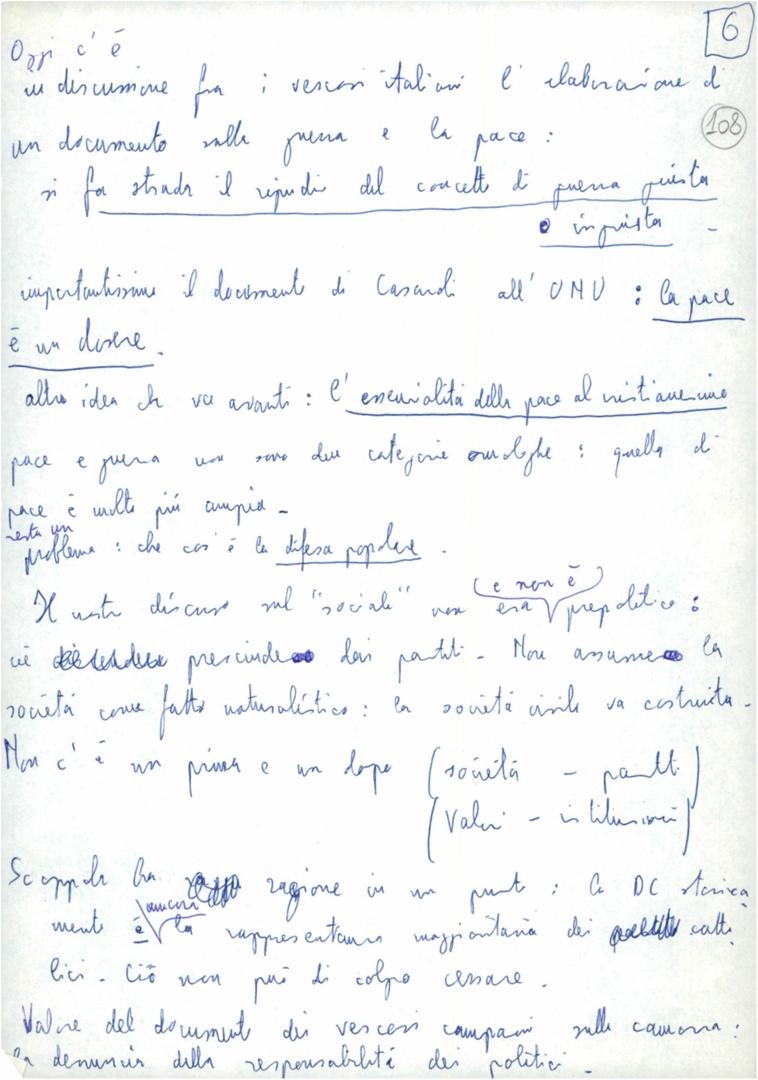 6
Oggi c'è
in discussione fra i vescovi italiani l'elaborazione di
108
un documento sulla guerra e la pace :
si fa strada il ripudio del concetto di guerra giusta
o ingiusta -
importantissimo il documento di Casaroli all'ONU : la pace
è un dovere -
altra idea che va avanti : l'essenzialità della pace al cristianesimo
pace e guerra non sono due categorie omologhe : quella di
pace è molto più ampia -
resta un
problema : che cos'è la difesa popolare .
e non è
Il nostro discorso sul "sociale" non era prepolitico :
cioè prescinde dai partiti - Non assume la
società come fatto naturalistico : la società civile va costruita -
Non c'è un prima e un dopo (società - partiti)
(Valori - istituzioni)
Scoppola ha ragione in un punto : la DC storica
ancora
mente è la rappresentanza maggioritaria dei catto
lici - Ciò non può di colpo cessare .
Valore del documento dei vescovi campani sulla camorra :
la denuncia della responsabilità dei politici -